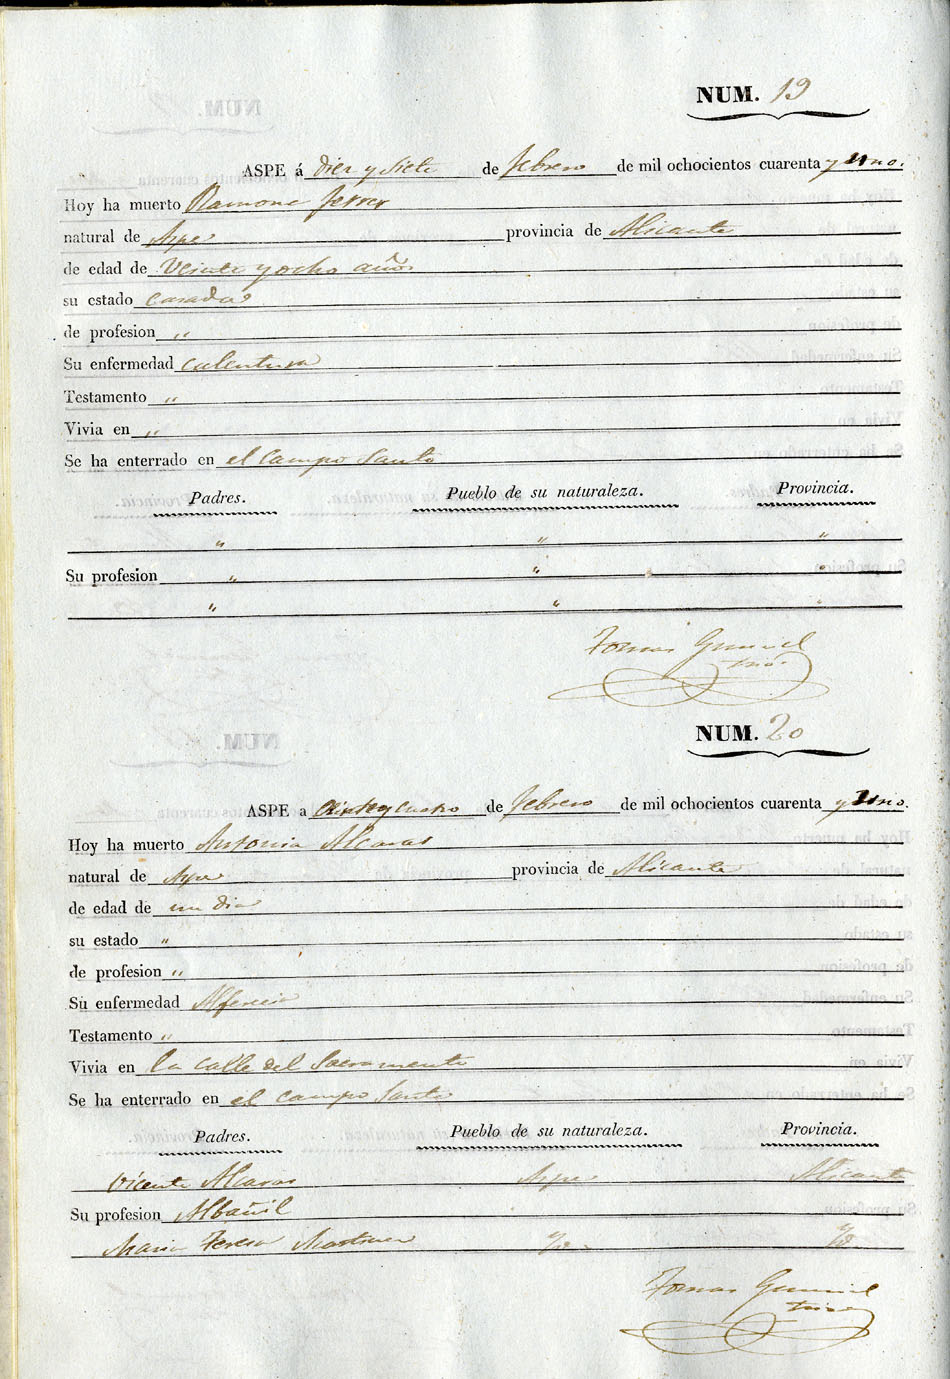 NUM. 19
ASPE á Diez y Siete de febrero de mil ochocientos cuarenta y uno.
Hoy ha muerto Ramona ferrer
natural de Aspe provincia de Alicante
de edad de Veinte y ocho años
su estado casada
de profesion "
Su enfermedad calentura
Testamento "
Vivia en "
Se ha enterrado en el Campo Santo
Padres. Pueblo de su naturaleza. Provincia.
" " "
Su profesion " " "
" " "
Tomas
NUM. 20
ASPE a de febrero de mil ochocientos cuarenta y uno.
Hoy ha muerto Antonia Alcaras
natural de Aspe provincia de Alicante
de edad de un dia
su estado "
de profesion "
Su enfermedad Alferecia
Testamento "
Vivia en la calle del Sacramento
Se ha enterrado en el campo Santo
Padres. Pueblo de su naturaleza. Provincia.
Vicente Alcaras Aspe Alicante
Su profesion Albañil
Maria Teresa Martinez Yd. Yd.
Tomas